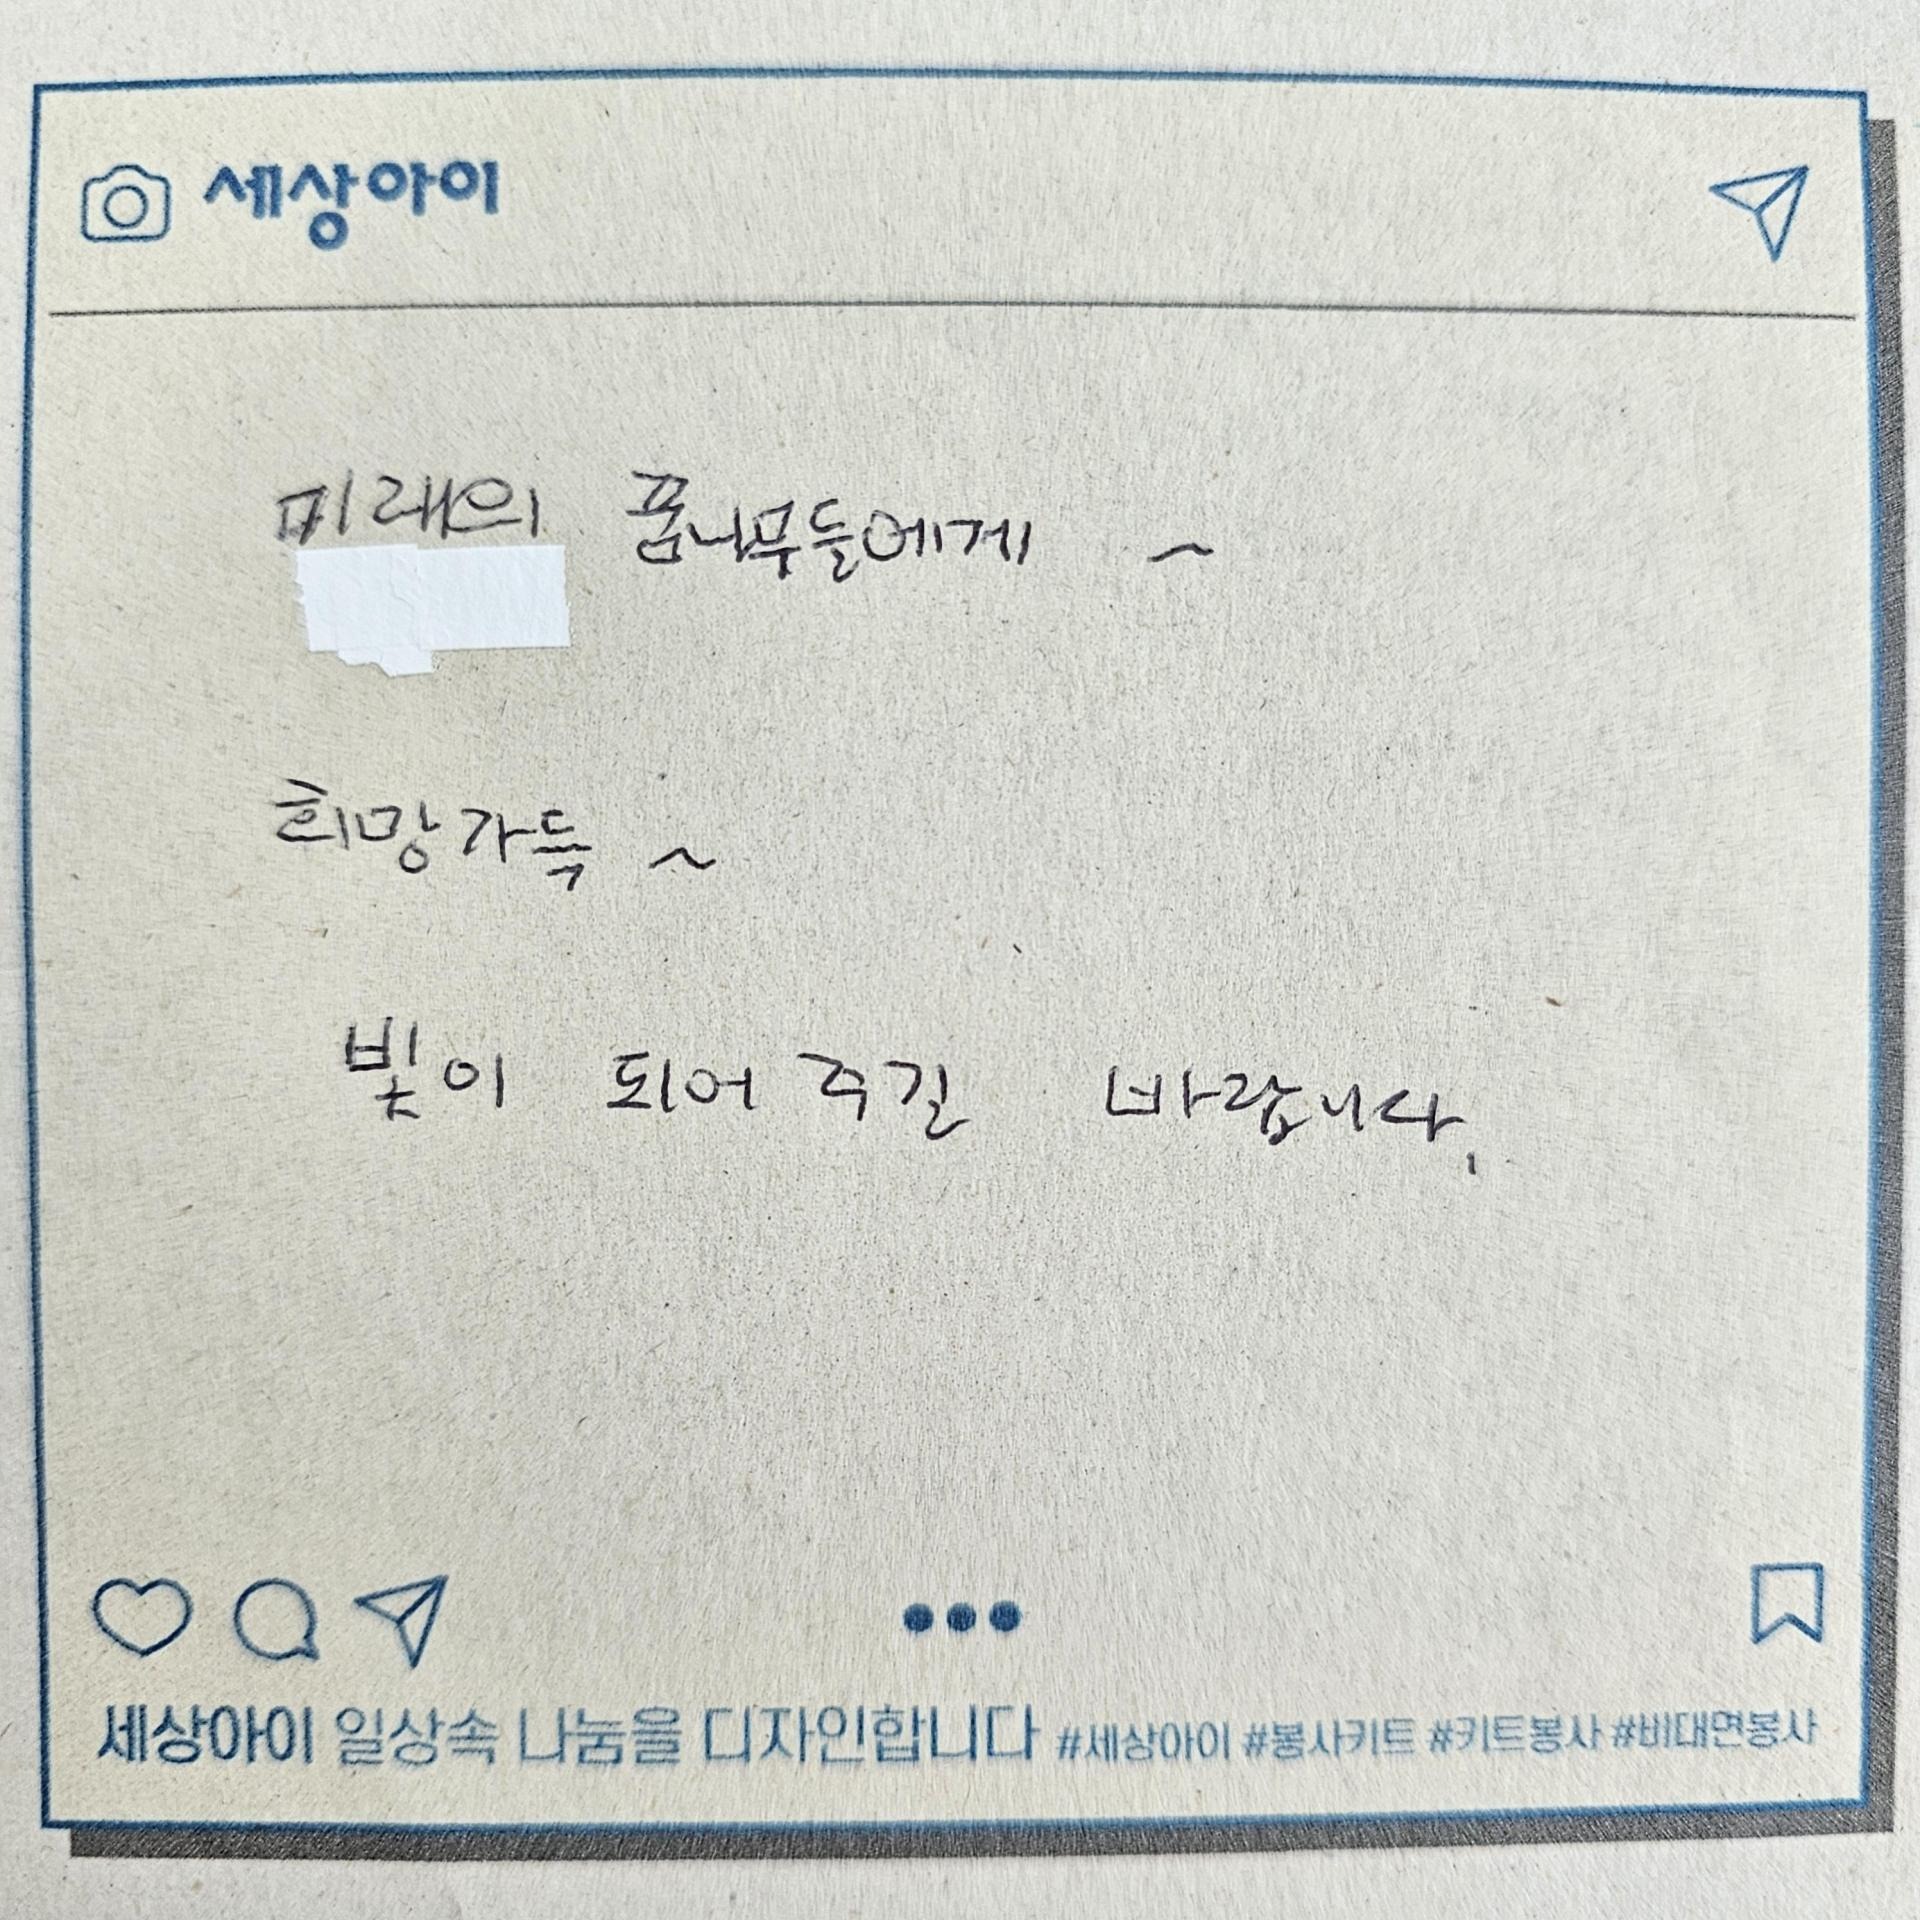 세상아이
미래의 꿈나무들에게 ~
희망가득 ~
빛이 되어 주길 바랍니다.
세상아이 일상속 나눔을 디자인합니다 #세상아이 #봉사키트 #키트봉사 #비대면봉사